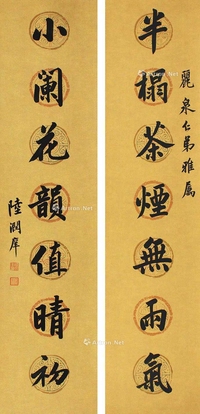 麗泉仁弟雅屬
半榻茶煙無雨氣
小闌花韻值晴初
陸潤庠